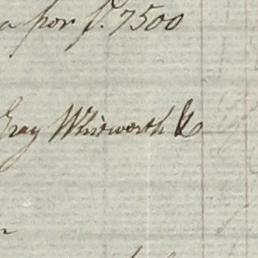 a por f. 7500
Gray Whitworth &